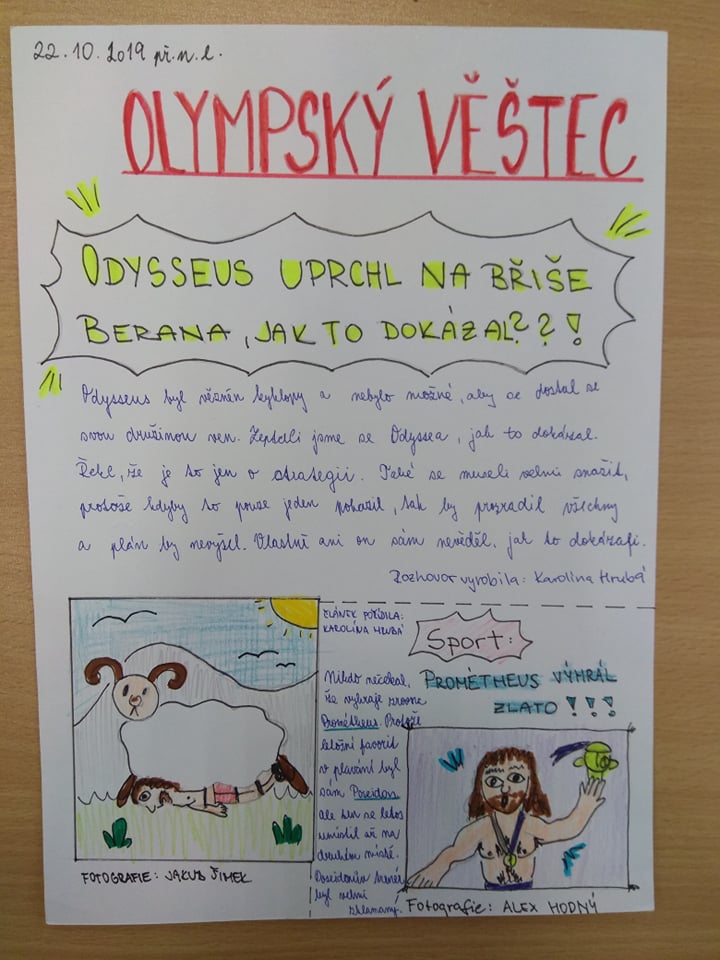 22.10.2019 př.n.l.
OLYMPSKÝ VĚŠTEC
ODYSSEUS UPRCHL NA BŘIŠE
BERANA, JAK TO DOKÁZAL??!
Odysseus byl vězněn kyklopy a nebylo možné, aby se dostal se
svou družinou ven. Zeptali jsme se Odyssea, jak to dokázal.
Řekl, že je to jen o strategii. Také se museli velmi snažit,
protože kdyby to pouze jeden pokazil, tak by prozradil všechny
a plán by nevyšel. Vlastně ani on sám nevěděl, jak to dokázali.
Rozhovor vyrobila: Karolína Hrubá
FOTOGRAFIE: JAKUB ŠIMEK
ČLÁNEK POŘÍDILA:
KAROLÍNA HRUBÁ
Nikdo nečekal,
že vyhraje zrovna
Prométheus. Protože
letošní favorit
v plavání byl
sám Poseidon,
ale ten se letos
umístil až na
druhém místě.
Poseidonův trenér
byl velmi
zklamaný.
Sport:
PROMÉTHEUS VYHRÁL
ZLATO!!!
Fotografie: ALEX HODNÝ